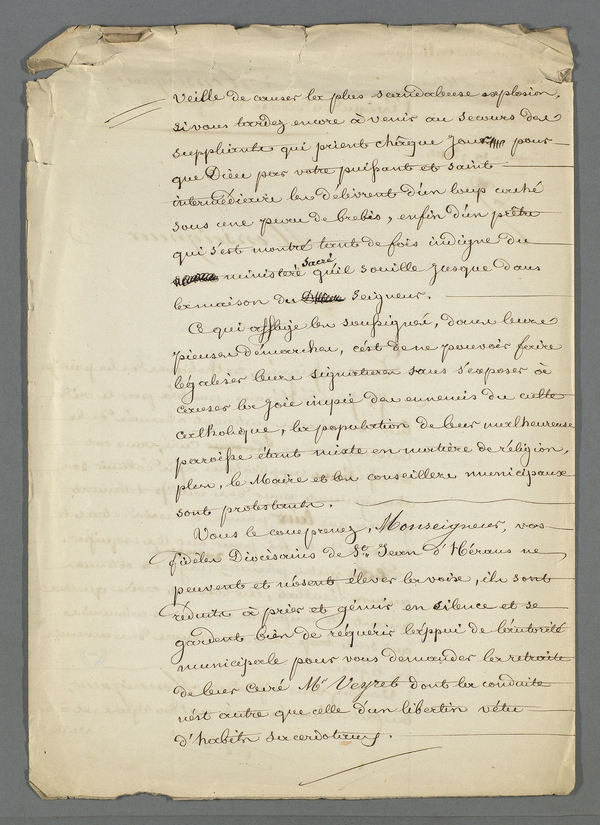 veille de causer la plus scandaleuse explosion,
si vous tardez encore à venir au secours des
suppliants qui prient châque jour pour
que Dieu par votre puissant et saint
intermédiaire les délivrent d'un loup caché
sous une peau de brebis, enfin d'un prêtre
qui s'est montré tant de fois indigne du
sacré
ministère qu'il souille jusque dans
la maison du Seigneur.
Ce qui afflije les soussignés, dans leurs
pieuses démarches, c'est de ne pouvoir faire
légaliser leurs signatures sans s'exposer à
causer la joie impie des ennemis du culte
catholique, la population de leur malheureuse
paroisse étant mixte en matière de réligion,
plus, le Maire et les conseillers municipaux
sont protestants.
Vous le comprenez, Monseigneur, vos
fidèles Diocésains de St. Jean d'Hérans ne
peuvent et n'osent élever la voix, ils sont
réduits à prier et gémir en silence et se
gardent bien de réquérir l'appui de l'autorité
municipale pour vous demander la retraite
de leur Curé Mr Veyret dont la conduite
n'est autre que celle d'un libertin vêtu
d'habits sacerdotaux.